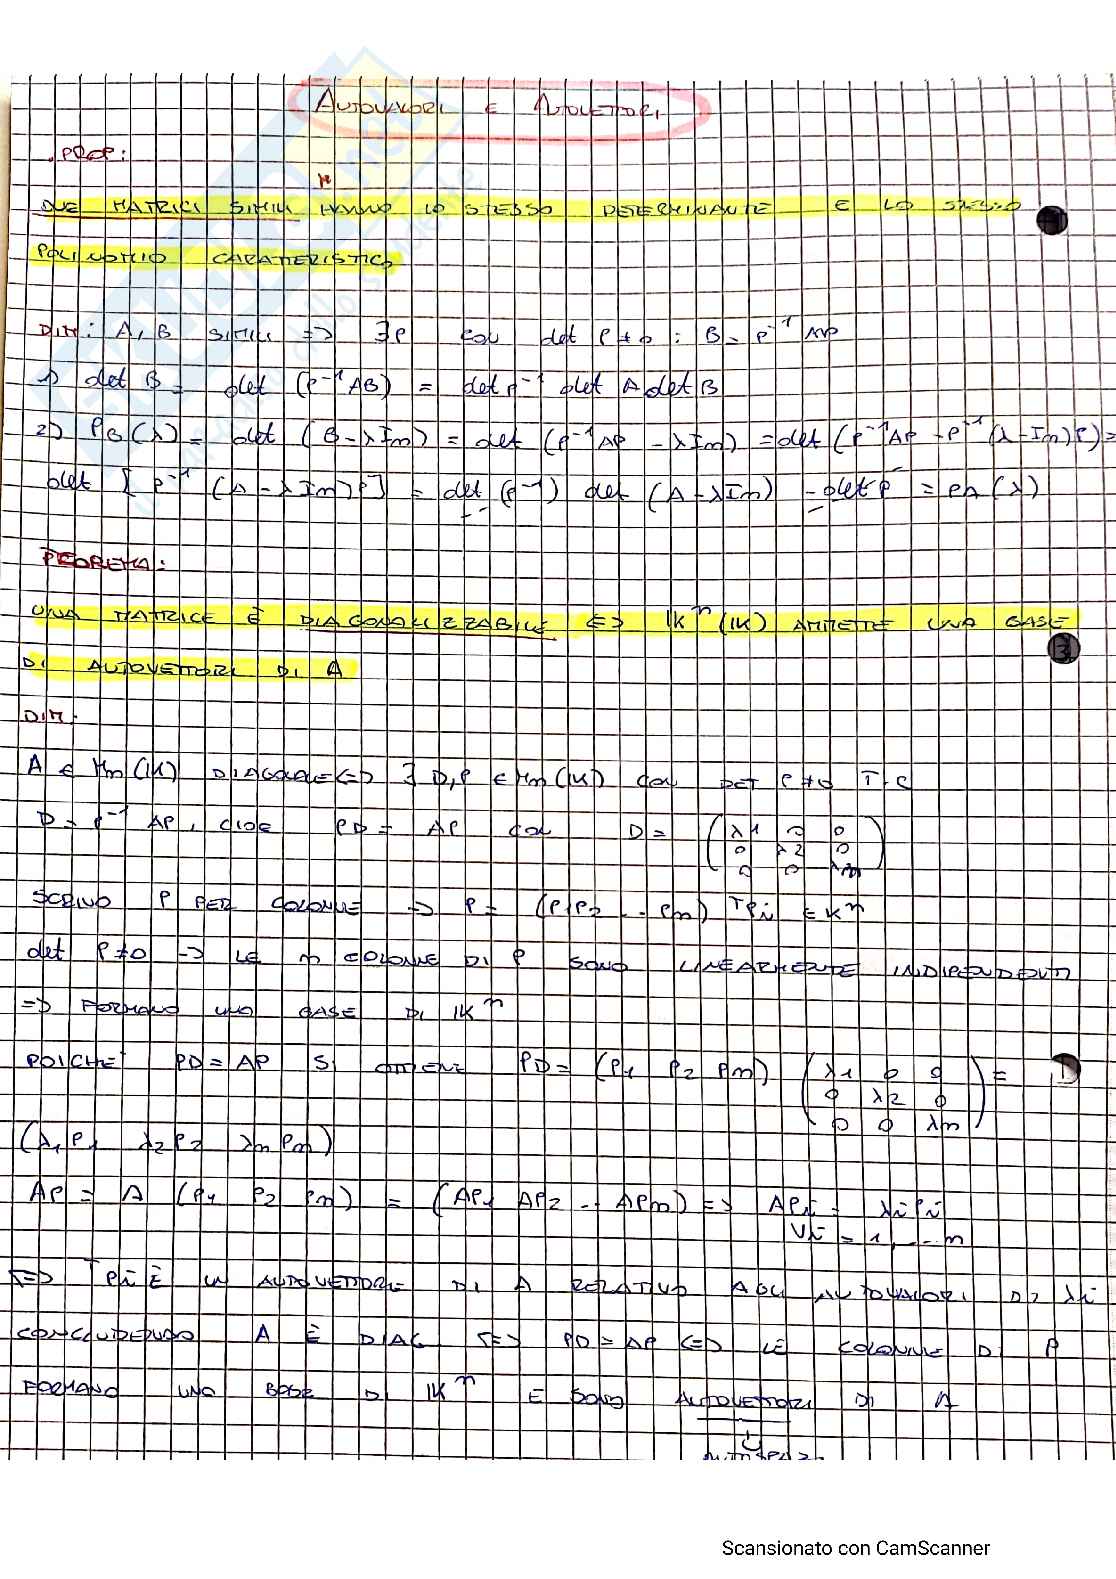 AUTOVALORI E AUTOVETTORI
.PROP:
DUE MATRICI SIMILI HANNO LO STESSO DETERMINANTE E LO STESSO
POLINOMIO CARATTERISTICO
DIM: A, B SIMILI => ∃P con det P ≠ 0 : B = P⁻¹ AP
1) det B = det (P⁻¹AB) = det P⁻¹ det A det B
2) PB(λ) = det (B-λIm) = det (P⁻¹AP - λIm) = det (P⁻¹AP - P⁻¹(λ-Im)P) =
det [P⁻¹ (A-λIm)P] = det (P⁻¹) det (A-λIm) - det P = PA(λ)
TEOREMA:
UNA MATRICE È DIAGONALIZZABILE <=> IKⁿ(IK) AMMETTE UNA BASE
DI AUTOVETTORI DI A
DIM:
A ∈ Mm(IK) DIAGONALE <=> ∃ D,P ∈ Mm(IK) CON DET P ≠ 0 T.C
D = P⁻¹ AP, CIOE PD = AP CON D = (λ1 0 0
0 λ2 0
0 0 λm)
SCRIVO P PER COLONNE -> P = (P1P2 .. Pm) TPi ∈ Kⁿ
det P ≠ 0 -> LE m COLONNE DI P SONO LINEARMENTE INDIPENDENTI
=> FORMANO UNA BASE DI IKⁿ
POICHE' PD = AP SI OTTIENE PD = (P1 P2 Pm) (λ1 0 0
0 λ2 0
0 0 λm) =
(λ1P1 λ2P2 λmPm)
AP = A (P1 P2 Pm) = (AP1 AP2 .. APm) => APi = λiPi
∀i = 1,...m
<=> TPi È UN AUTOVETTORE DI A RELATIVO AGLI AUTOVALORI DI λi
CONCLUDENDO A È DIAG <=> PD = AP <=> LE COLONNE DI P
FORMANO UNA BASE DI IKⁿ E SONO AUTOVETTORI DI A
Scansionato con CamScanner